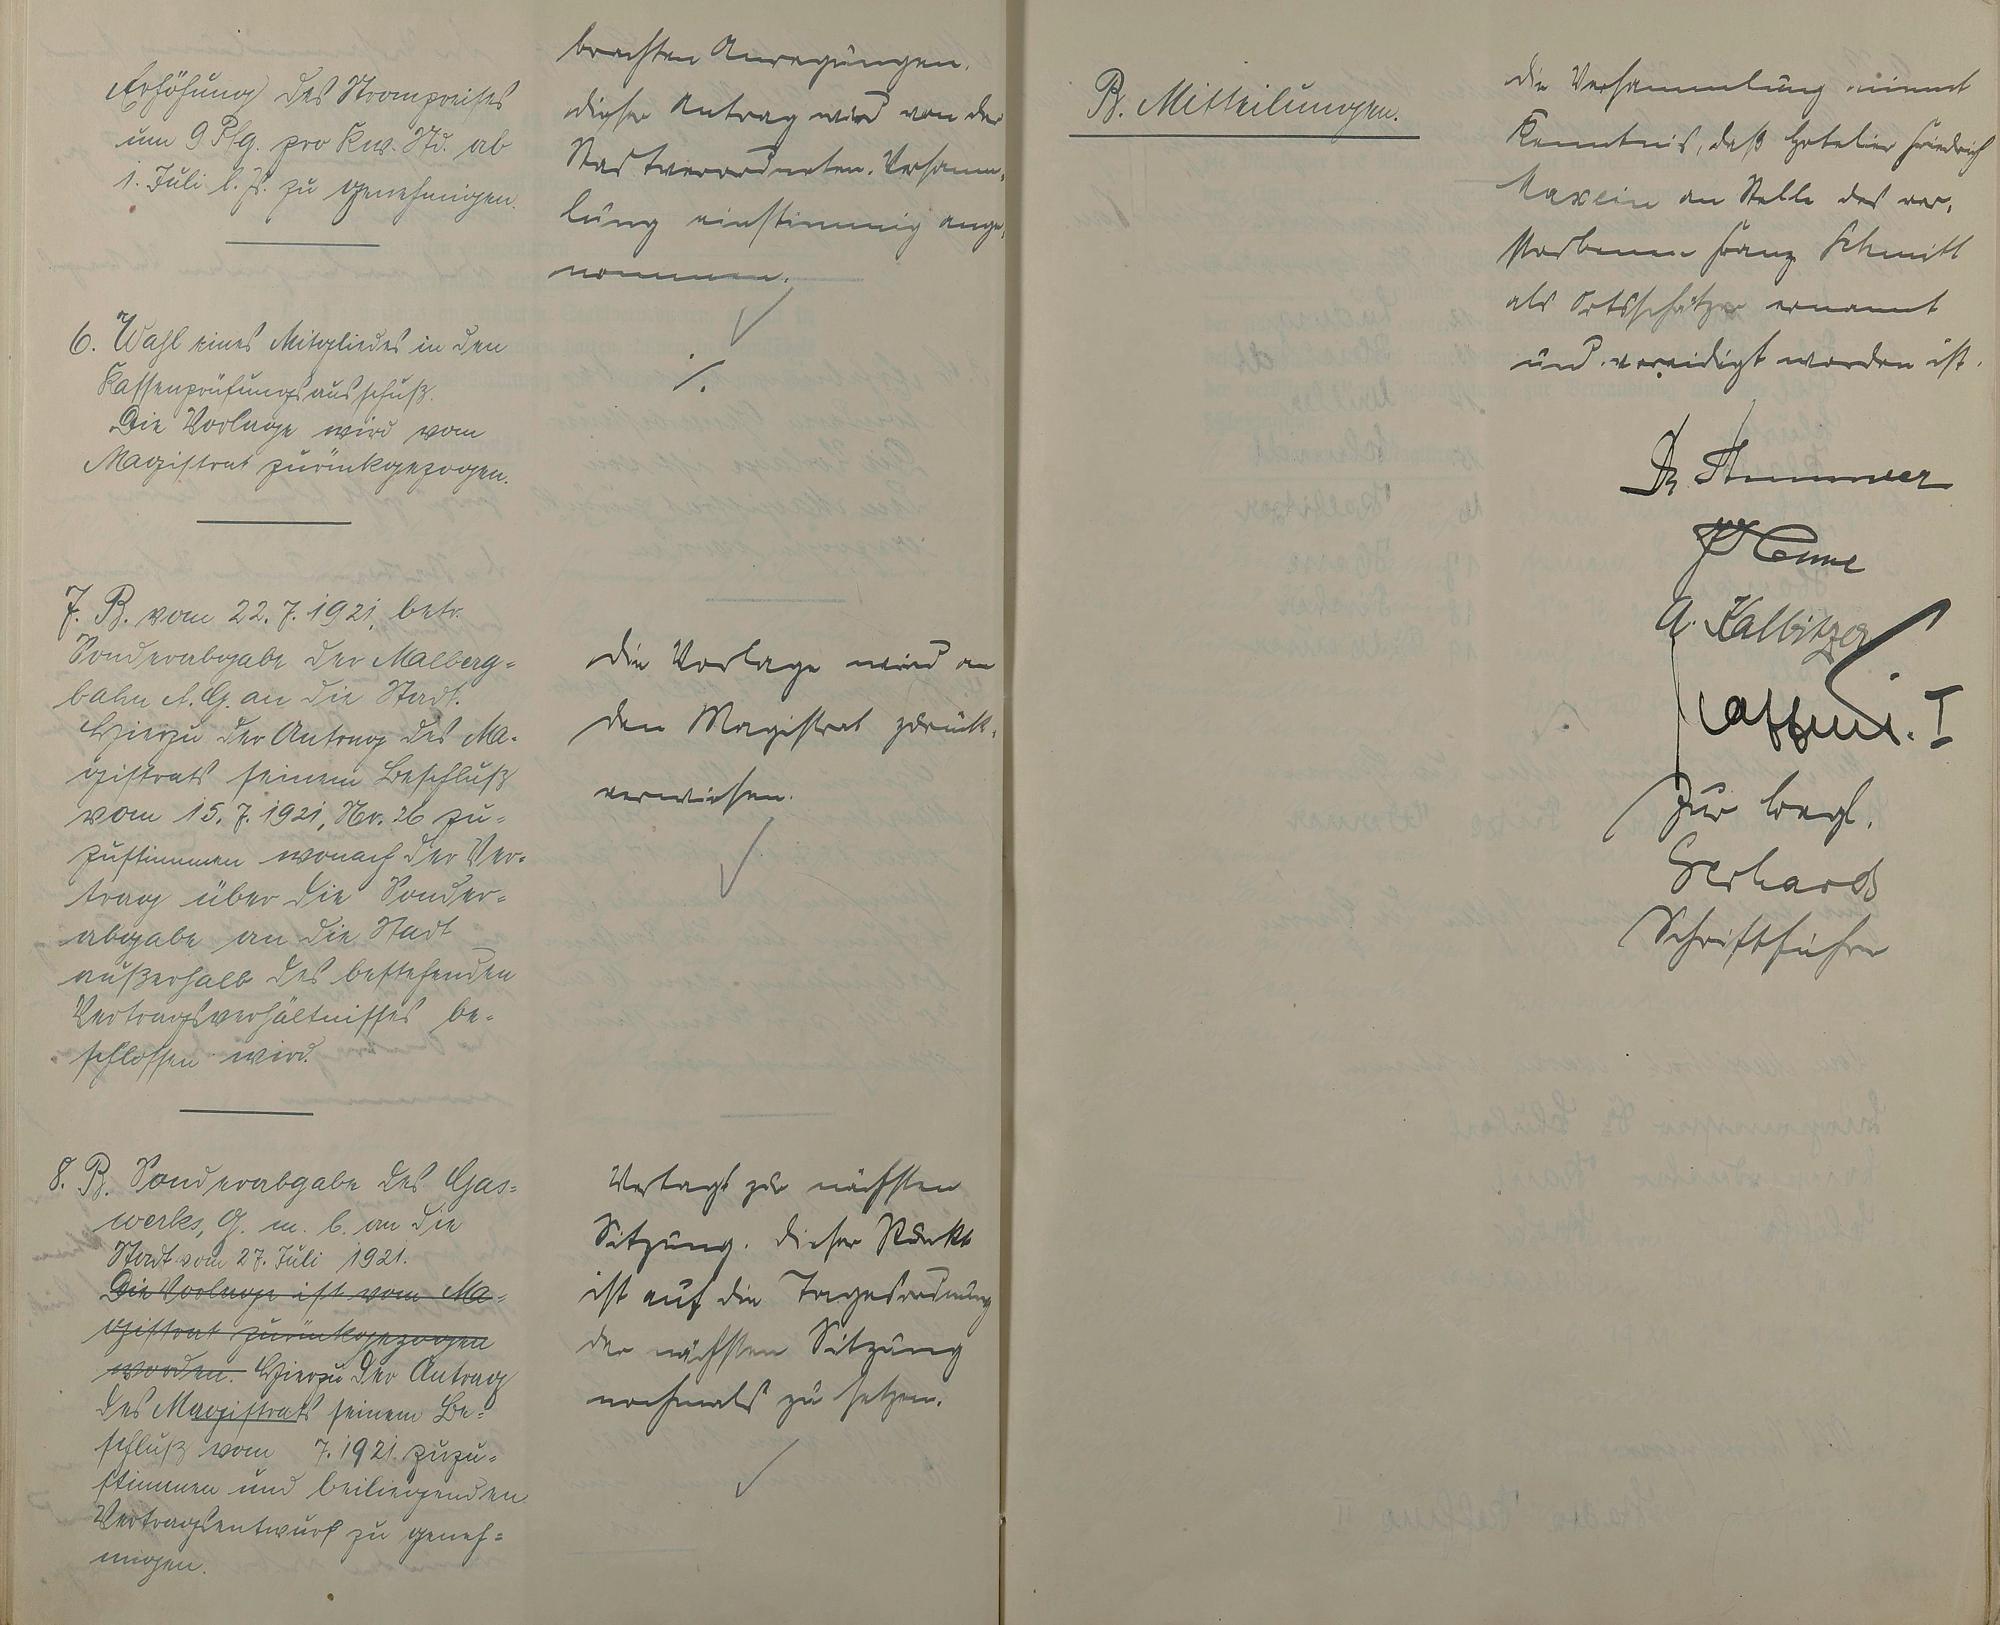 Erhöhung des Strompreises
um 9 Pfg. pro Kw. Std. ab
1. Juli l. Js. zu genehmigen.
6. Wahl eines Mitgliedes in den
Kassenprüfungsausschuß.
Die Vorlage wird vom
Magistrat zurückgezogen.
7. B. vom 22. 7. 1921, betr.
Sonderabgabe der Malberg-
bahn A. G. an die Stadt.
Hierzu der Antrag des Ma-
gistrats seinem Beschluß
vom 15. 7. 1921, Nr. 26 zu-
zustimmen wonach der Ver-
trag über die Sonder-
abgabe an die Stadt
außerhalb des bestehenden
Vertragsverhältnisses be-
schlossen wird.
8. B. Sonderabgabe des Gas-
werks, G. m. b. an die
Stadt vom 27. Juli 1921.
Die Vorlage ist vom Ma-
gistrat zurückgezogen
worden. Hierzu der Antrag
des Magistrats seinem Be-
schluß vom 7. 1921. zuzu-
stimmen und beiliegenden
Vertragsentwurf zu geneh-
migen.
brachten Anregungen.
Dieser Antrag wird von der
Stadtverordneten-Versamm-
lung einstimmig ange-
nommen.
./.
Die Vorlage wird an
den Magistrat zurück-
verwiesen.
Vertagt zur nächsten
Sitzung. Dieser Punkt
ist auf die Tagesordnung
der nächsten Sitzung
nochmals zu setzen.
B. Mitteilungen.
Die Versammlung nimmt
Kenntnis, daß Hotelier Friedrich
Maxein an Stelle des ver-
storbenen Franz Schmitt
als Ortsschätzer ernannt
und vereidigt worden ist.
Dr Stemmer
A. Kalbitzer
Zur Begl.
Gerhards
Schriftführer